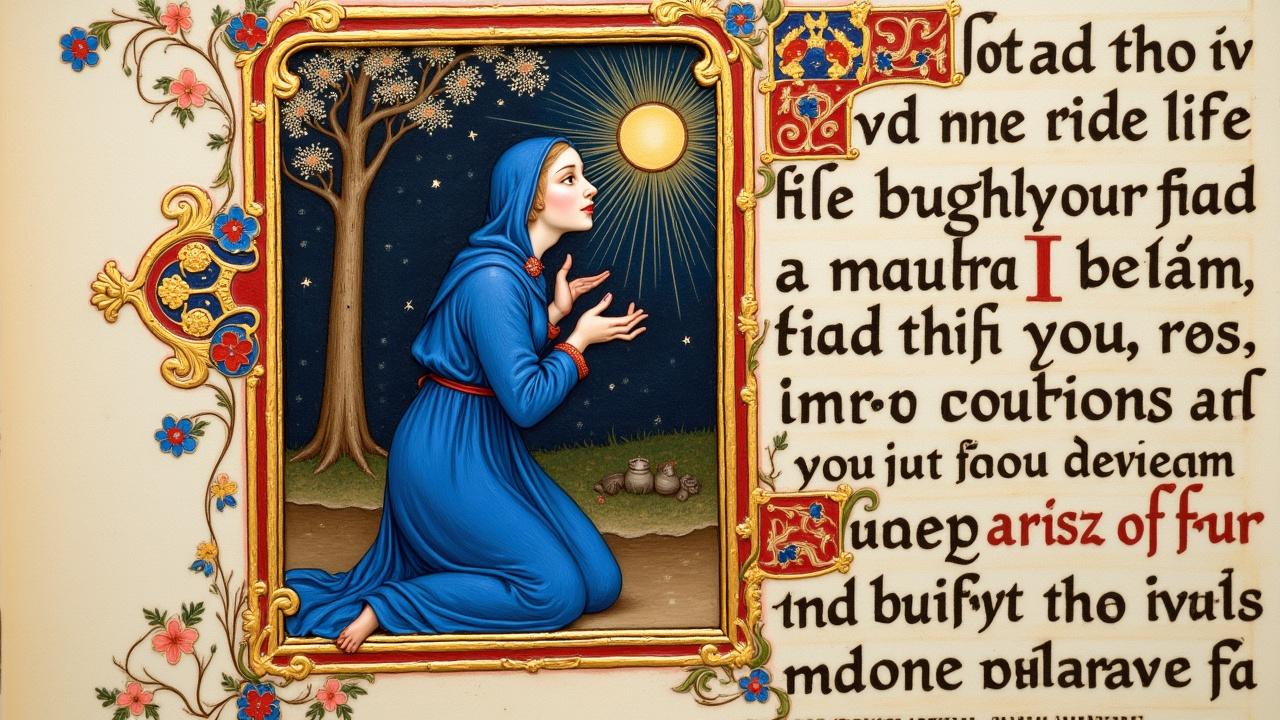 ſot ad tho iv
vd nne ride life
hiſe bughlyour fiad
a mautra I belám,
tiad thiſi you, rɘs,
imr·o coutions arſ
you jut faou devieam
uaep arisz of fur
ind buifyt tho ivuls
mdone pHlarave fa